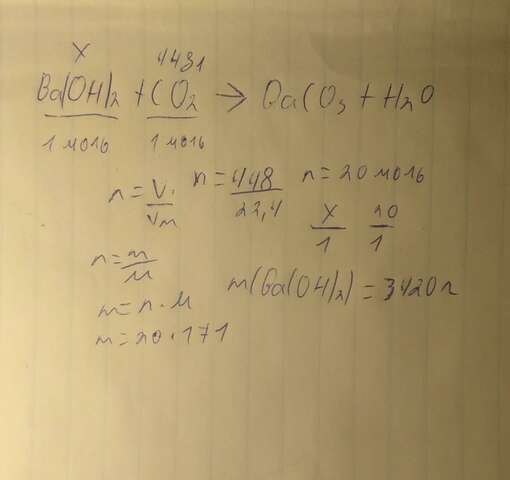 x 448л
Ba(OH)₂ + CO₂ → BaCO₃ + H₂O
1 моль 1 моль
n = V/Vm n = 448/22,4 n = 20 моль
x/1 20/1
n = m/M
m = n · M m(Ba(OH)₂) = 3420г
m = 20 · 171